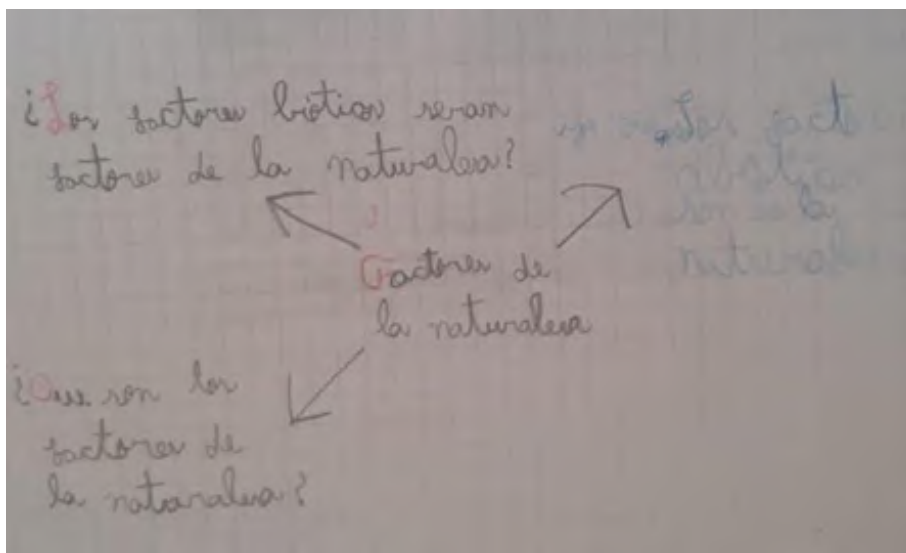 ¿Los factores bióticos seran
factores de la naturaleza?
Los facto
son
la
natural
Factores de
la naturaleza
¿Que son los
factores de
la naturaleza?